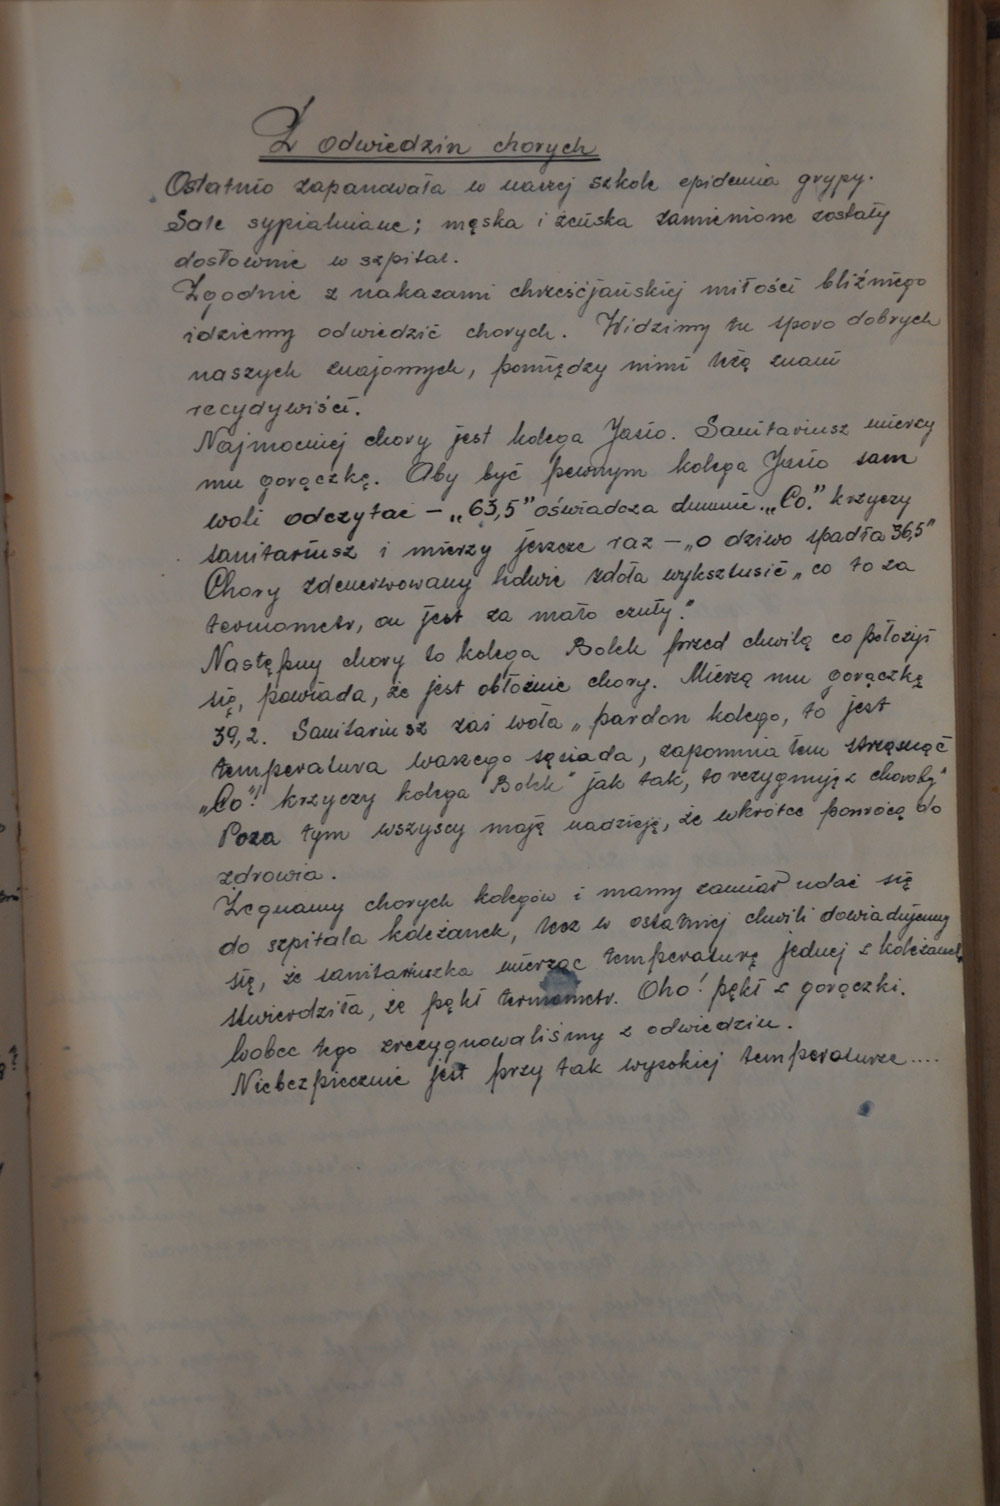 Z odwiedzin chorych
Ostatnio zapanowała w naszej szkole epidemia grypy.
Sale sypialniane; męska i żeńska zamienione zostały
dosłownie w szpital.
Zgodnie z nakazami chrześcjańskiej miłości bliźniego
idziemy odwiedzić chorych. Widzimy tu sporo dobrych
naszych znajomych, pomiędzy nimi leżą znani
recydywiści.
Najmocniej chory jest kolega Jasio. Sanitariusz mierzy
mu gorączkę. Aby być pewnym kolega Jasio sam
woli odczytać – „63,5" oświadcza dumnie. „Co." krzyczy
sanitariusz i mierzy jeszcze raz – „o dziwo spadła 36,5"
Chory zdenerwowany ledwie zdoła wyksztusić „co to za
termometr, on jest za mało czuły."
Następny chory to kolega Bolek przed chwilą co położył
się, powiada, że jest obłożnie chory. Mierzą mu gorączkę
39,2. Sanitariusz zaś woła „pardon kolego, to jest
temperatura waszego sąsiada, zapomniałem strząsnąć
„Co"! krzyczy kolega Bolek "jak tak, to rezygnuję z choroby"
Poza tym wszyscy mają nadzieję, że wkrótce powrócą do
zdrowia.
Żegnamy chorych kolegów i mamy zamiar udać się
do szpitala koleżanek, lecz w ostatniej chwili dowiadujemy
się, że sanitariuszka mierząc temperaturę jednej z koleżanek,
stwierdziła, że pękł termometr. Oho! pękł z gorączki.
Wobec tego zrezygnowaliśmy z odwiedzin.
Niebezpiecznie jest przy tak wysokiej temperaturze....